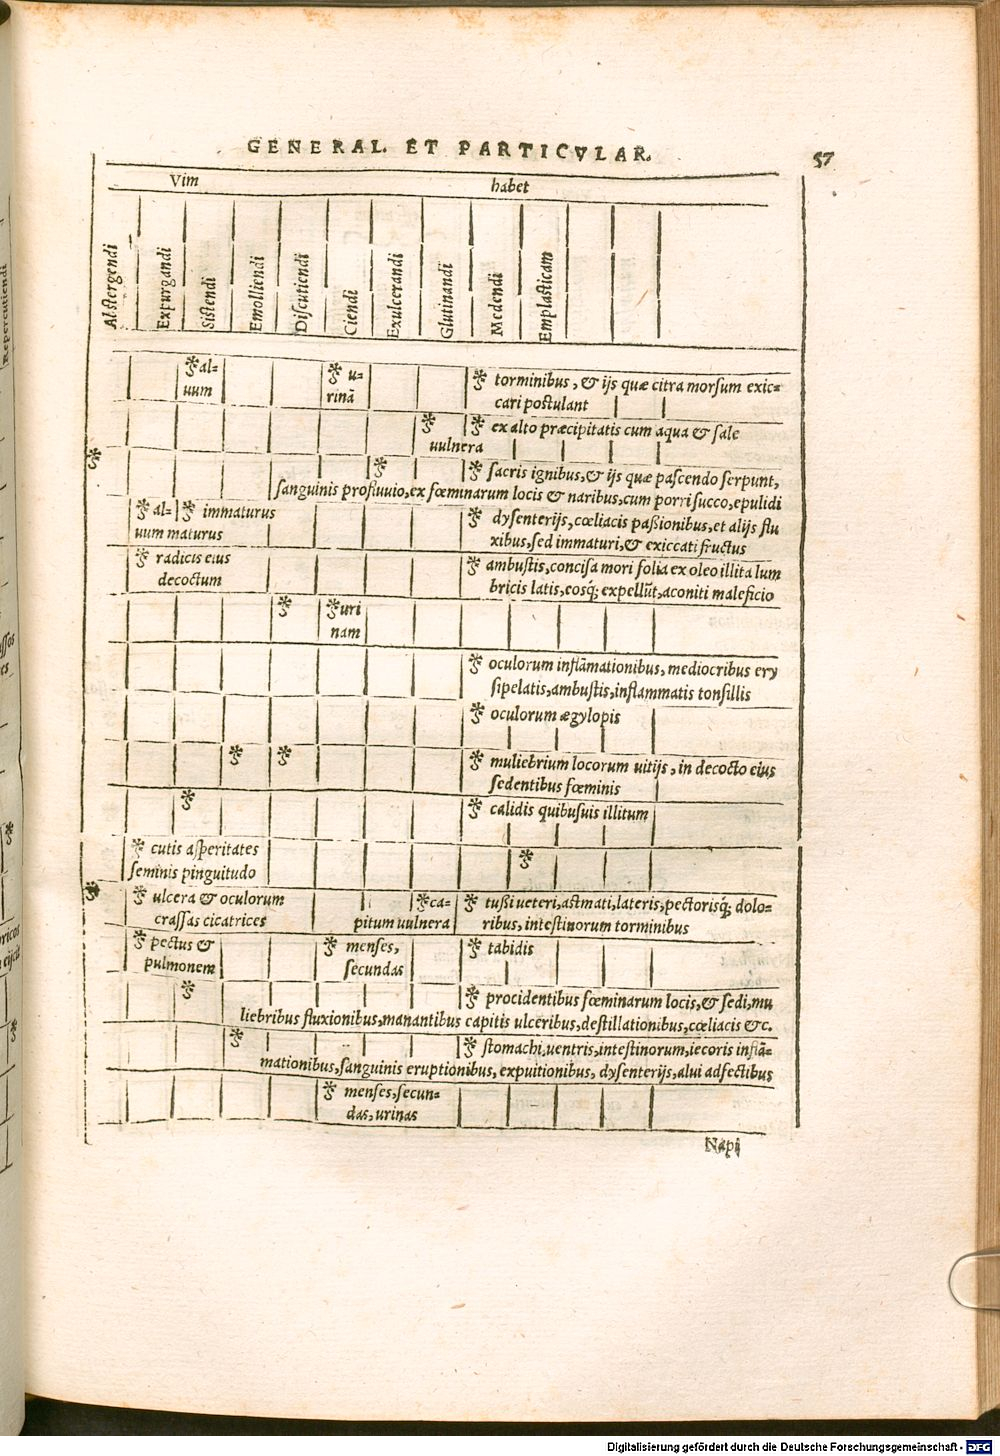 GENERAL. ET PARTICVLAR.
57
Vim habet
Abstergendi
Expurgandi
Sistendi
Emolliendi
Discutiendi
Ciendi
Exulcerandi
Glutinandi
Medendi
Emplasticam
Repercutiendi
al- u- torminibus, & ijs quæ citra morsum exic-
uum rinā cari postulant
ex alto præcipitatis cum aqua & sale
uulnera
sacris ignibus, & ijs quæ pascendo serpunt,
sanguinis profluuio, ex fœminarum locis & naribus, cum porri succo, epulidi
al- immaturus dysenterijs, cœliacis paßionibus, et alijs flu
uum maturus xibus, sed immaturi, & exiccati fructus
radicis eius ambustis, concisa mori folia ex oleo illita lum
decoctum bricis latis, eosq́; expellūt, aconiti maleficio
uri
nam
oculorum inflāmationibus, mediocribus ery
sipelatis, ambustis, inflammatis tonsillis
oculorum ægylopis
muliebrium locorum uitijs, in decocto eius
sedentibus fœminis
calidis quibusuis illitum
cutis asperitates
seminis pinguitudo
ulcera & oculorum ca- tußi ueteri, astmati, lateris, pectorisq́; dolo-
crassas cicatrices pitum uulnera ribus, intestinorum torminibus
pectus & menses, tabidis
pulmonem secundas
procidentibus fœminarum locis, & sedi, mu
liebribus fluxionibus, manantibus capitis ulceribus, destillationibus, cœliacis &c.
stomachi, uentris, intestinorum, iecoris inflā-
mationibus, sanguinis eruptionibus, expuitionibus, dysenterijs, alui adfectibus
menses, secun-
das, urinas
Napi
Digitalisierung gefördert durch die Deutsche Forschungsgemeinschaft - DFG